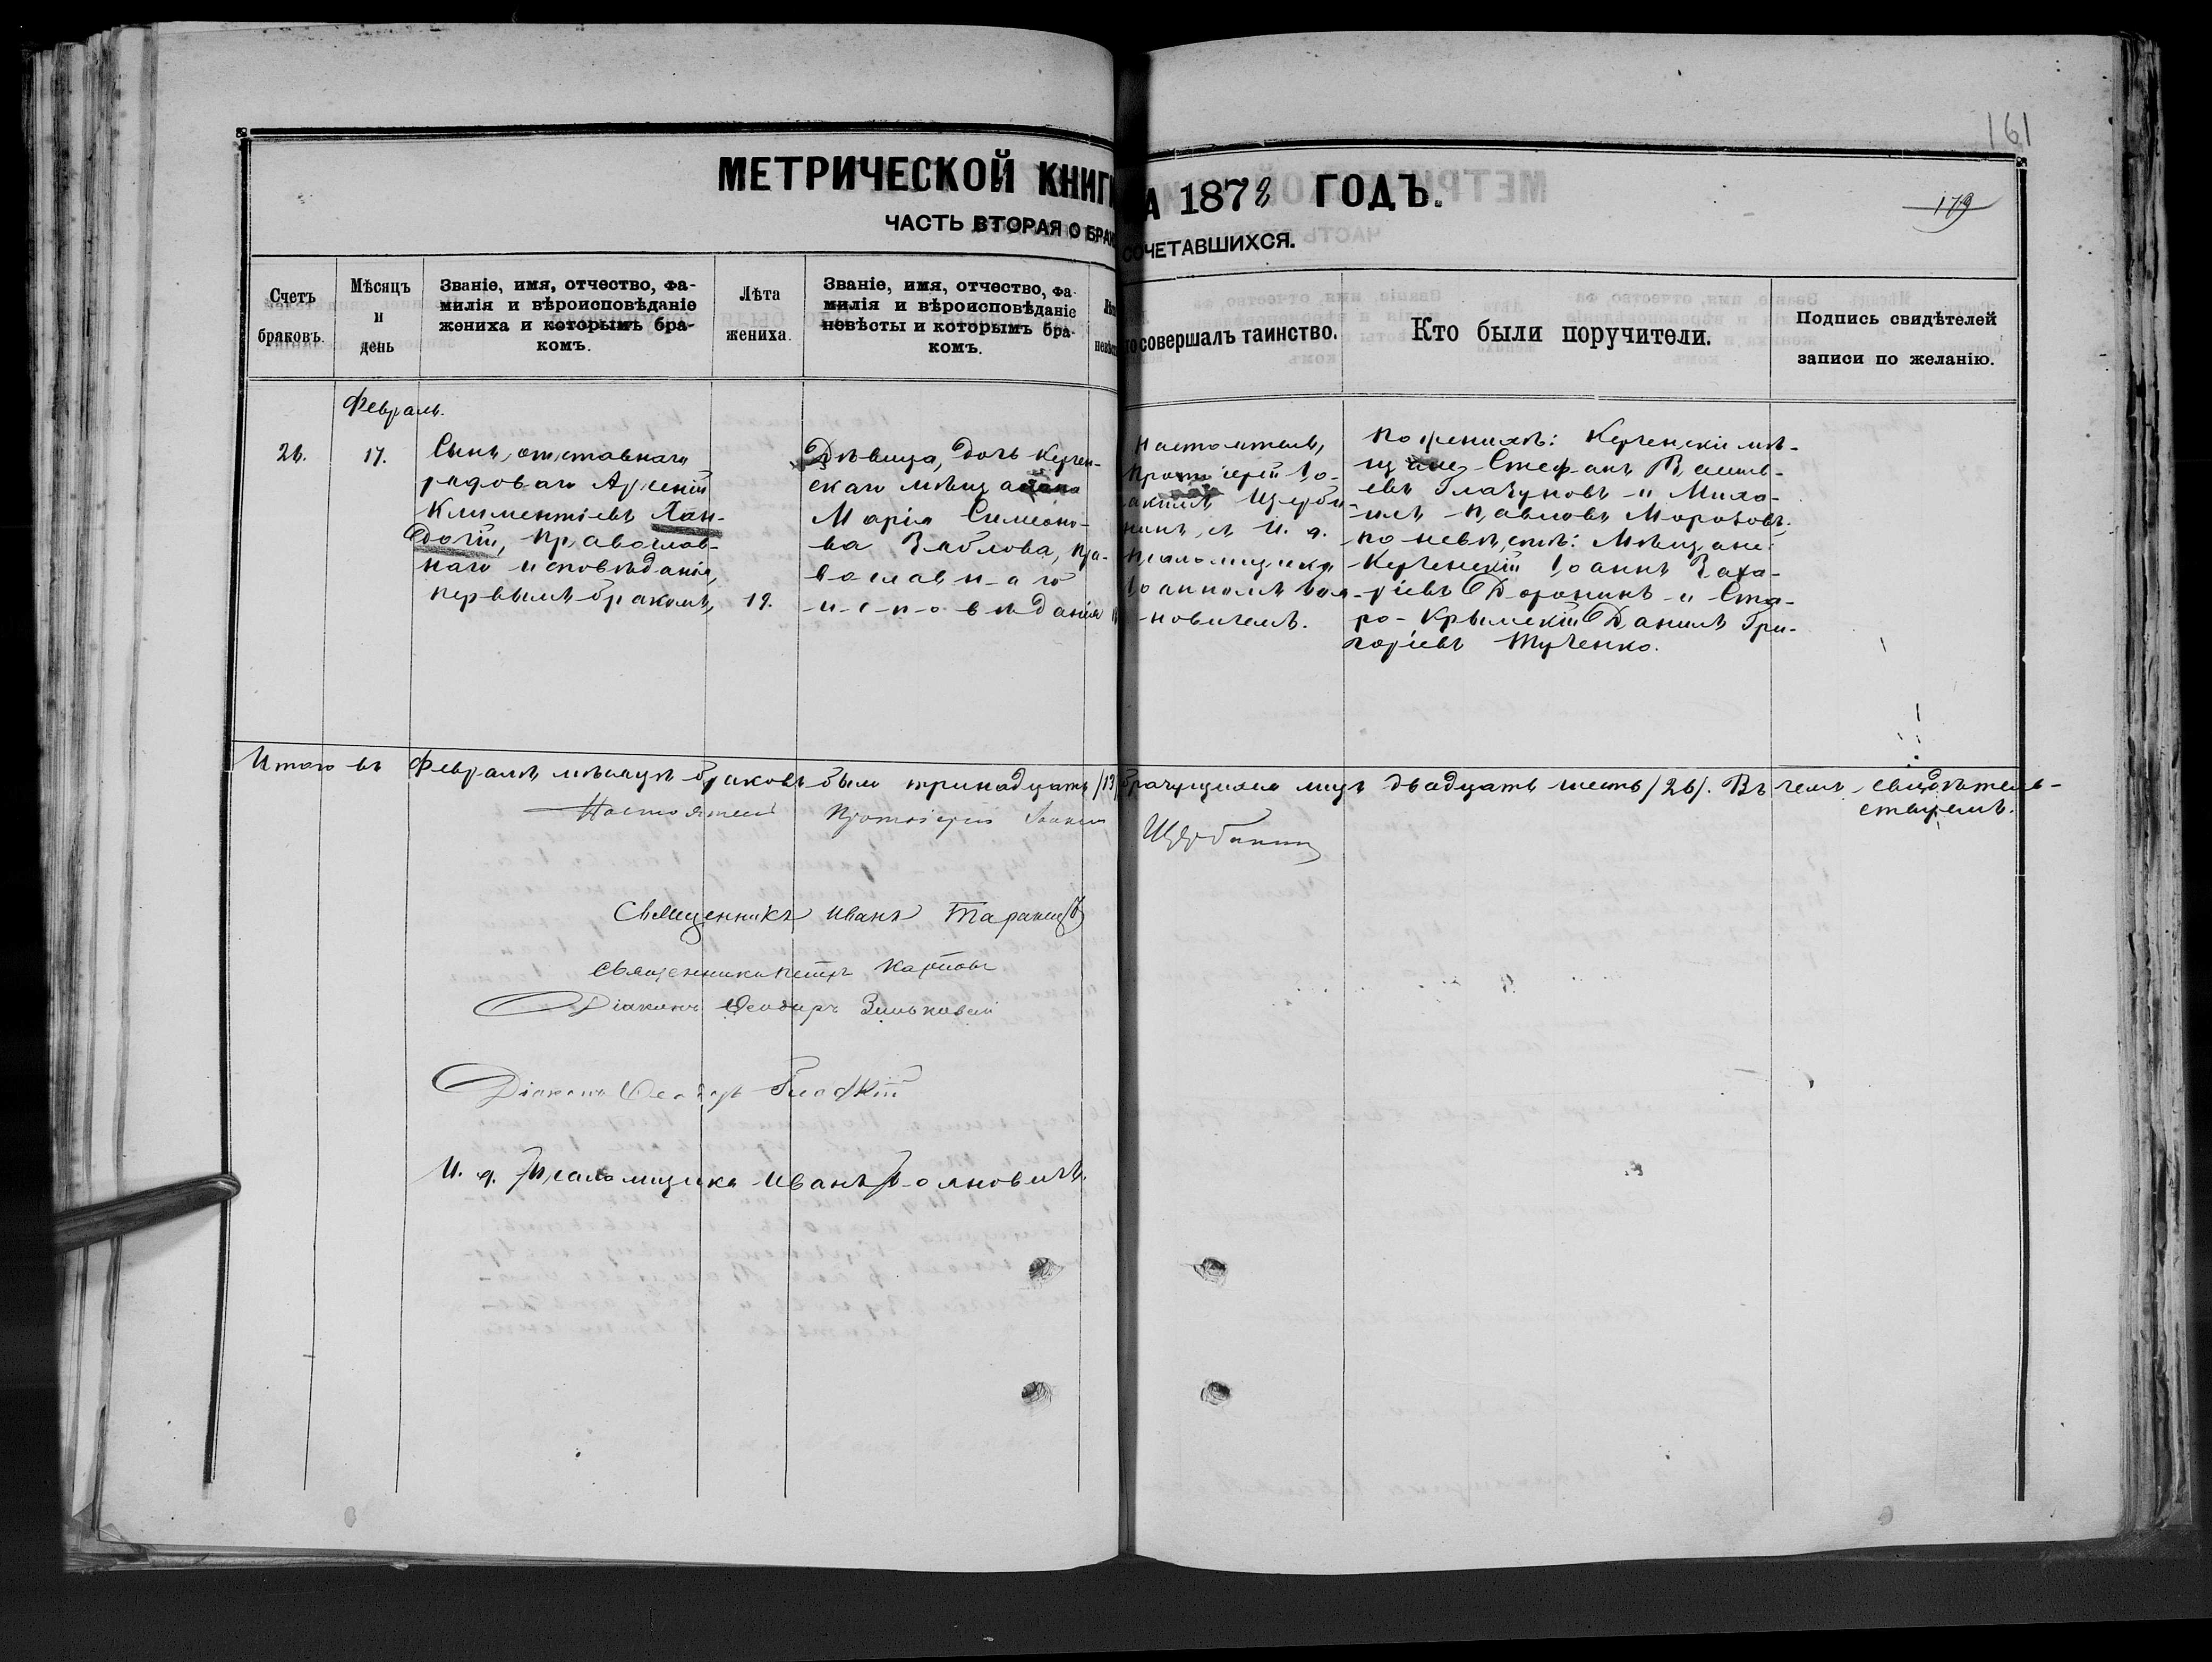 161
МЕТРИЧЕСКОЙ КНИГ
А 1878 ГОДЪ.
179
ЧАСТЬ ВТОРАЯ О БРАК
СОЧЕТАВШИХСЯ.
Счетъ
браковъ.
Мѣсяцъ
и
день
Званіе, имя, отчество, фа-
милія и вѣроисповѣданіе
жениха и которымъ бра-
комъ.
Лѣта
жениха.
Званіе, имя, отчество, фа-
милія и вѣроисповѣданіе
невѣсты и которымъ бра-
комъ.
невѣс
то совершалъ таинство.
Кто были поручители.
Подпись свидѣтелей
записи по желанію.
Февраль.
26.
17.
Сынъ отставнаго
рядоваго Арсеній
Климентіевъ Лан-
православ-
наго исповѣданія,
первымъ бракомъ,
19.
Дѣвица, дочь Керчен-
скаго мѣщанина
Марія Симеоно-
ва Зяблова, пра-
вославнаго
исповѣданія
Настоятель,
Протоіерей Іо-
акимъ Щерба
нинъ, съ И. д.
Псаломщика
Іоанномъ Воя-
новичемъ.
По женихѣ: Керченскіе мѣ-
щане Стефанъ Васильевъ
Глазуновъ и Миха-
илъ Павловъ Морозовъ.
По невѣстѣ: Мѣщане:
Керченскій Іоаннъ Заха-
ріевъ Доронинъ и Ста-
ро-Крымскій Даніилъ Гри-
горіевъ Тученко.
Итого въ Февралѣ мѣсяцѣ браковъ было тринадцать /13/ брачущихся лицъ двадцать шесть /26/. Въ чемъ свидѣтель-
ствуемъ.
Настоятель Протоіерей Іоаким Щербанин
Священникъ Иванъ Таранец
Священникъ Петръ Карпов
Діаконъ Ѳеодоръ Зиньковскій
Діаконъ Ѳеодоръ
И. д. Псаломщика Иванъ Воянович.